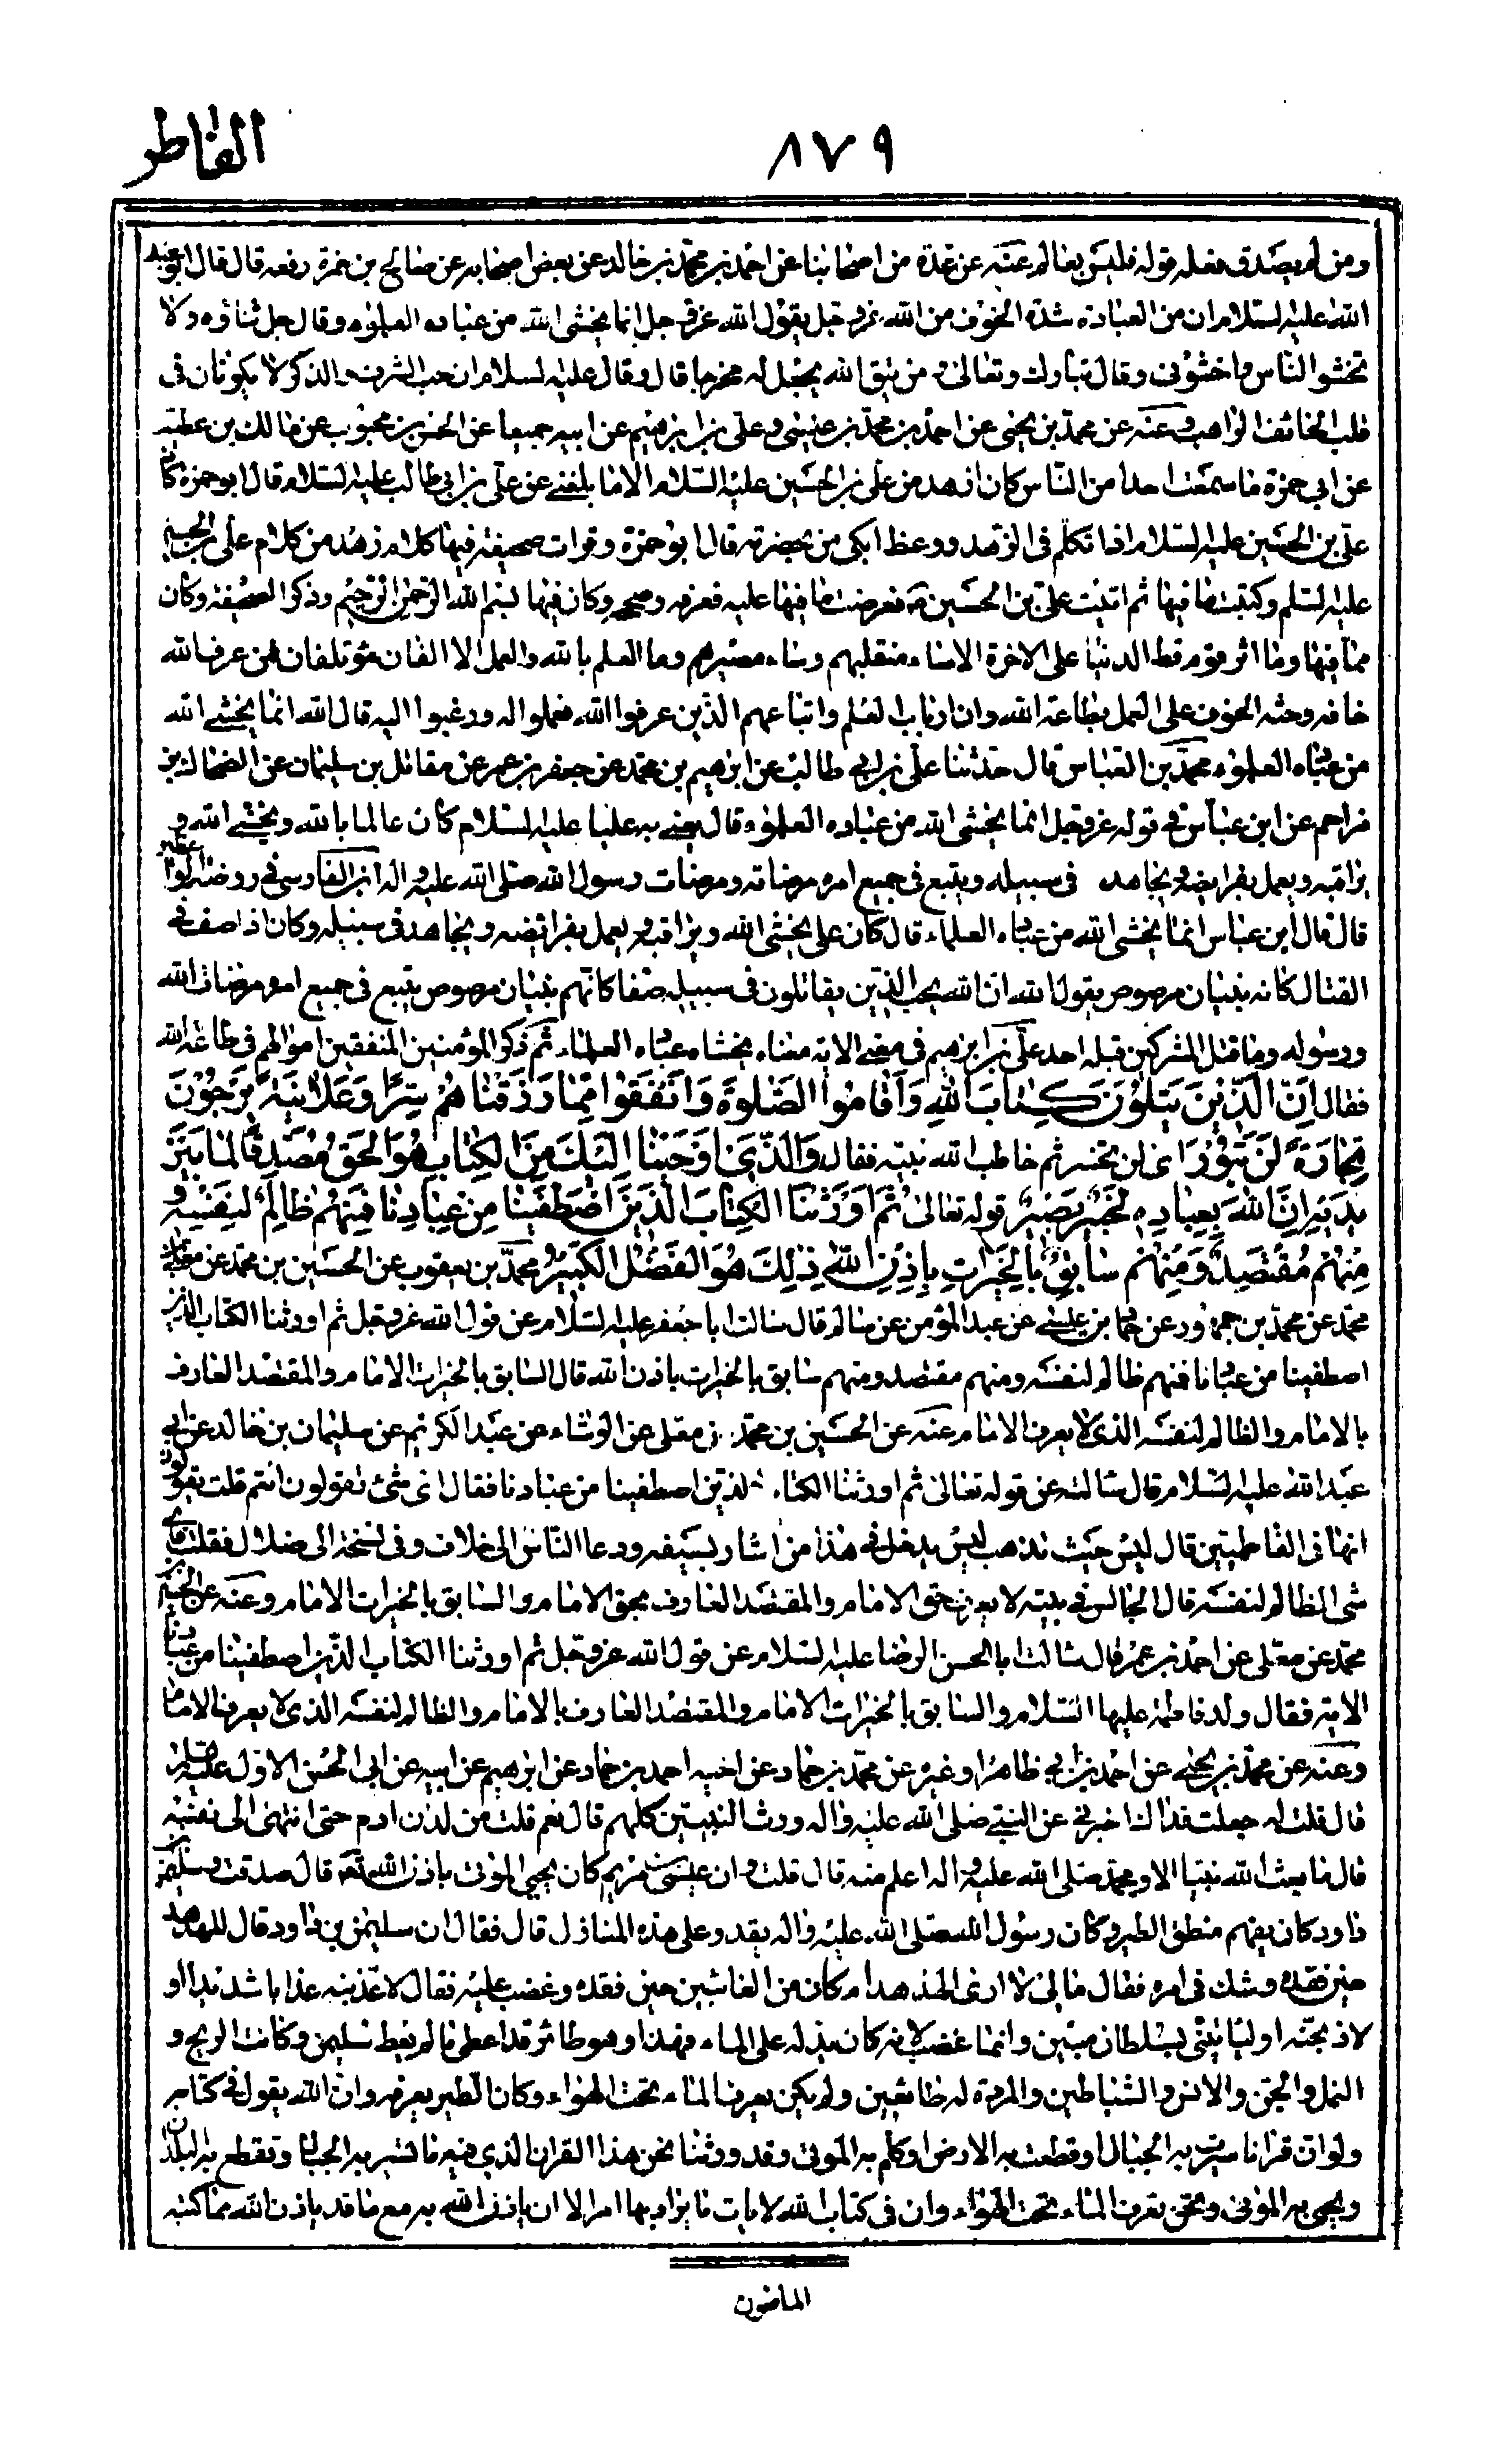 الفاطر
٨٧٩
ومن لم يصدق فعله قوله فليس بعالم عنه عن عدة من اصحابنا عن احمد بن محمد بن خالد عن بعض اصحابه عن صالح بن حمزة رفعه قال قال ابو عبد
الله عليه السلام ان من العبادة شدة الخوف من الله عز وجل يقول الله عز وجل انما يخشى الله من عباده العلموء وقال جل ثناؤه ولا
تخشوا الناس واخشونى وقال تبارك وتعالى ومن يتق الله يجعل له مخرجا قال وقال عليه السلام ان حب الشرف والذكر لا يكونان فى
قلب الخائف الراهب وعنه عن محمد بن يحيى عن احمد بن محمد بن عيسى وعلى بن ابرهيم عن ابيه جميعا عن الحسن بن محبوب عن مالك بن عطية
عن ابى حمزة ما سمعت احدا من الناس كان ازهد من على بن الحسين عليه السلام الا ما بلغنى عن على بن ابى طالب عليه السلام قال ابو حمزة كان
على بن الحسين عليه السلام اذا تكلم فى الزهد ووعظ ابكى من بحضرته قال ابو حمزة وقرات صحيفة فيها كلام زهد من كلام على بن الحسين
عليه السلم وكتبت ما فيها ثم اتيت على بن الحسين ع فعرضت ما فيها عليه فعرفه وصححه وكان فيها بسم الله الرحمن الرحيم وذكر الصحيفة وكان
مما فيها وما اثر قوم قط الدنيا على الاخرة الا ساء منقلبهم وساء مصيرهم وما العلم بالله والعمل الا الفان مؤتلفان فمن عرف الله
خافه وحثه الخوف على العمل بطاعة الله وان ارباب العلم واتباعهم الذين عرفوا الله فعملوا له ورغبوا اليه قال الله انما يخشى الله
من عباده العلموء محمد بن العباس قال حدثنا على بن ابى طالب عن ابرهيم بن محمد عن جعفر بن عمر عن مقاتل بن سليمان عن الضحاك بن
مزاحم عن ابن عباس فى قوله عز وجل انما يخشى الله من عباده العلموء قال يعنى به عليا عليه السلام كان عالما بالله ويخشى الله و
يراقبه ويعمل بفرايضه ويجاهد فى سبيله ويتبع فى جميع امره مرضاته ومرضات رسول الله صلى الله عليه واله ابن الفارسى فى روضة الواعظين
قال قال ابن عباس انما يخشى الله من عباده العلماء قال كان على يخشى الله ويراقبه ويعمل بفرائضه ويجاهد فى سبيله وكان اذا صف فى
القتال كانه بنيان مرصوص يقول الله ان الله يحب الذين يقاتلون فى سبيله صفا كانهم بنيان مرصوص يتبع فى جميع امره مرضات الله
ورسوله وما قتل المشركين قبله احد على بن ابرهيم فى معنى الاية معناه يخشاه عباده العلماء ثم ذكر المؤمنين المنفقين اموالهم فى طاعة الله
فقال اِنَّ الَّذِينَ يَتْلُونَ كِتَابَ اللَّهِ وَاَقَامُوا الصَّلٰوةَ وَاَنْفَقُوا مِمَّا رَزَقْنَاهُمْ سِرًّا وَعَلَانِيَةً يَرْجُونَ
تِجَارَةً لَنْ تَبُورَ اى لن يخسر ثم خاطب الله نبيه فقال وَالَّذِى اَوْحَيْنَا اِلَيْكَ مِنَ الْكِتَابِ هُوَ الْحَقُّ مُصَدِّقًا لِمَا بَيْنَ
يَدَيْهِ اِنَّ اللهَ بِعِبَادِهِ لَخَبِيرٌ بَصِيرٌ قوله تعالى ثُمَّ اَوْرَثْنَا الْكِتَابَ الَّذِينَ اصْطَفَيْنَا مِنْ عِبَادِنَا فَمِنْهُمْ ظَالِمٌ لِنَفْسِهِ وَ
مِنْهُمْ مُقْتَصِدٌ وَمِنْهُمْ سَابِقٌ بِالْخَيْرَاتِ بِاِذْنِ اللهِ ذٰلِكَ هُوَ الْفَضْلُ الْكَبِيرُ محمد بن يعقوب عن الحسين بن محمد عن معلى بن
محمد عن محمد بن جمهور عن حماد بن عيسى عن عبد المؤمن عن سالم قال سالت ابا جعفر عليه السلام عن قول الله عز وجل ثم اورثنا الكتاب الذين
اصطفينا من عبادنا فمنهم ظالم لنفسه ومنهم مقتصد ومنهم سابق بالخيرات باذن الله قال السابق بالخيرات الامام والمقتصد العارف
بالامام والظالم لنفسه الذى لا يعرف الامام عنه عن الحسين بن محمد عن معلى عن الوشاء عن عبد الكريم عن سليمان بن خالد عن ابى
عبد الله عليه السلام قال سالته عن قوله تعالى ثم اورثنا الكتاب الذين اصطفينا من عبادنا فقال اى شئ تقولون انتم قلت نقول
انها فى الفاطميين قال ليس حيث تذهب ليس يدخل فى هذا من اشار بسيفه ودعا الناس الى خلاف وفى نسخة الى ضلال فقلت فاى
شى الظالم لنفسه قال الجالس فى بيته لا يعرف حق الامام والمقتصد العارف بحق الامام والسابق بالخيرات الامام وعنه عن الحسين بن
محمد عن معلى عن احمد بن عمر قال سالت ابا الحسن الرضا عليه السلام عن قول الله عز وجل ثم اورثنا الكتاب الذين اصطفينا من عبادنا
الاية فقال ولد فاطمة عليها السلام والسابق بالخيرات الامام والمقتصد العارف بالامام والظالم لنفسه الذى لا يعرف الامام
وعنه عن محمد بن يحيى عن احمد بن ابى ظاهر او غيره عن محمد بن حماد عن اخيه احمد بن حماد عن ابرهيم عن ابيه عن ابى الحسن الاول عليه السلام
قال قلت له جعلت فداك اخبرنى عن النبى صلى الله عليه واله ورث النبيين كلهم قال نعم قلت من لدن ادم حتى انتهى الى نفسه
قال ما بعث الله نبيا الا ومحمد صلى الله عليه واله اعلم منه قال قلت وان عيسى بن مريم كان يحيى الموتى باذن الله تعه قال صدقت وسليمن بن
داود كان يفهم منطق الطير وكان رسول الله صلى الله عليه واله يقدر على هذه المنازل قال فقال ان سليمن بن داود قال للهدهد
حين فقده وشك فى امره فقال مالى لا ارى الهدهد ام كان من الغائبين حين فقده وغضب عليه فقال لاعذبنه عذابا شديدا او
لاذبحنه او لياتينى بسلطان مبين وانما غضب لانه كان يدله على الماء فهذا وهو طائر قد اعطى ما لم يعط سليمن وكانت الريح و
النمل والجن والانس والشياطين والمردة له طائعين ولم يكن يعرف الماء تحت الهواء وكان الطير يعرفه وان الله يقول فى كتابه
ولو ان قرانا سيرت به الجبال او قطعت به الارض او كلم به الموتى وقد ورثنا نحن هذا القران الذى فيه ما تسير به الجبال وتقطع به البلدان
ويحيى به الموتى ونحن نعرف الماء تحت الهواء وان فى كتاب الله لايات ما يراد بها امر الا ان ياذن الله به مع ما قد ياذن الله مما كتبه
الماضون